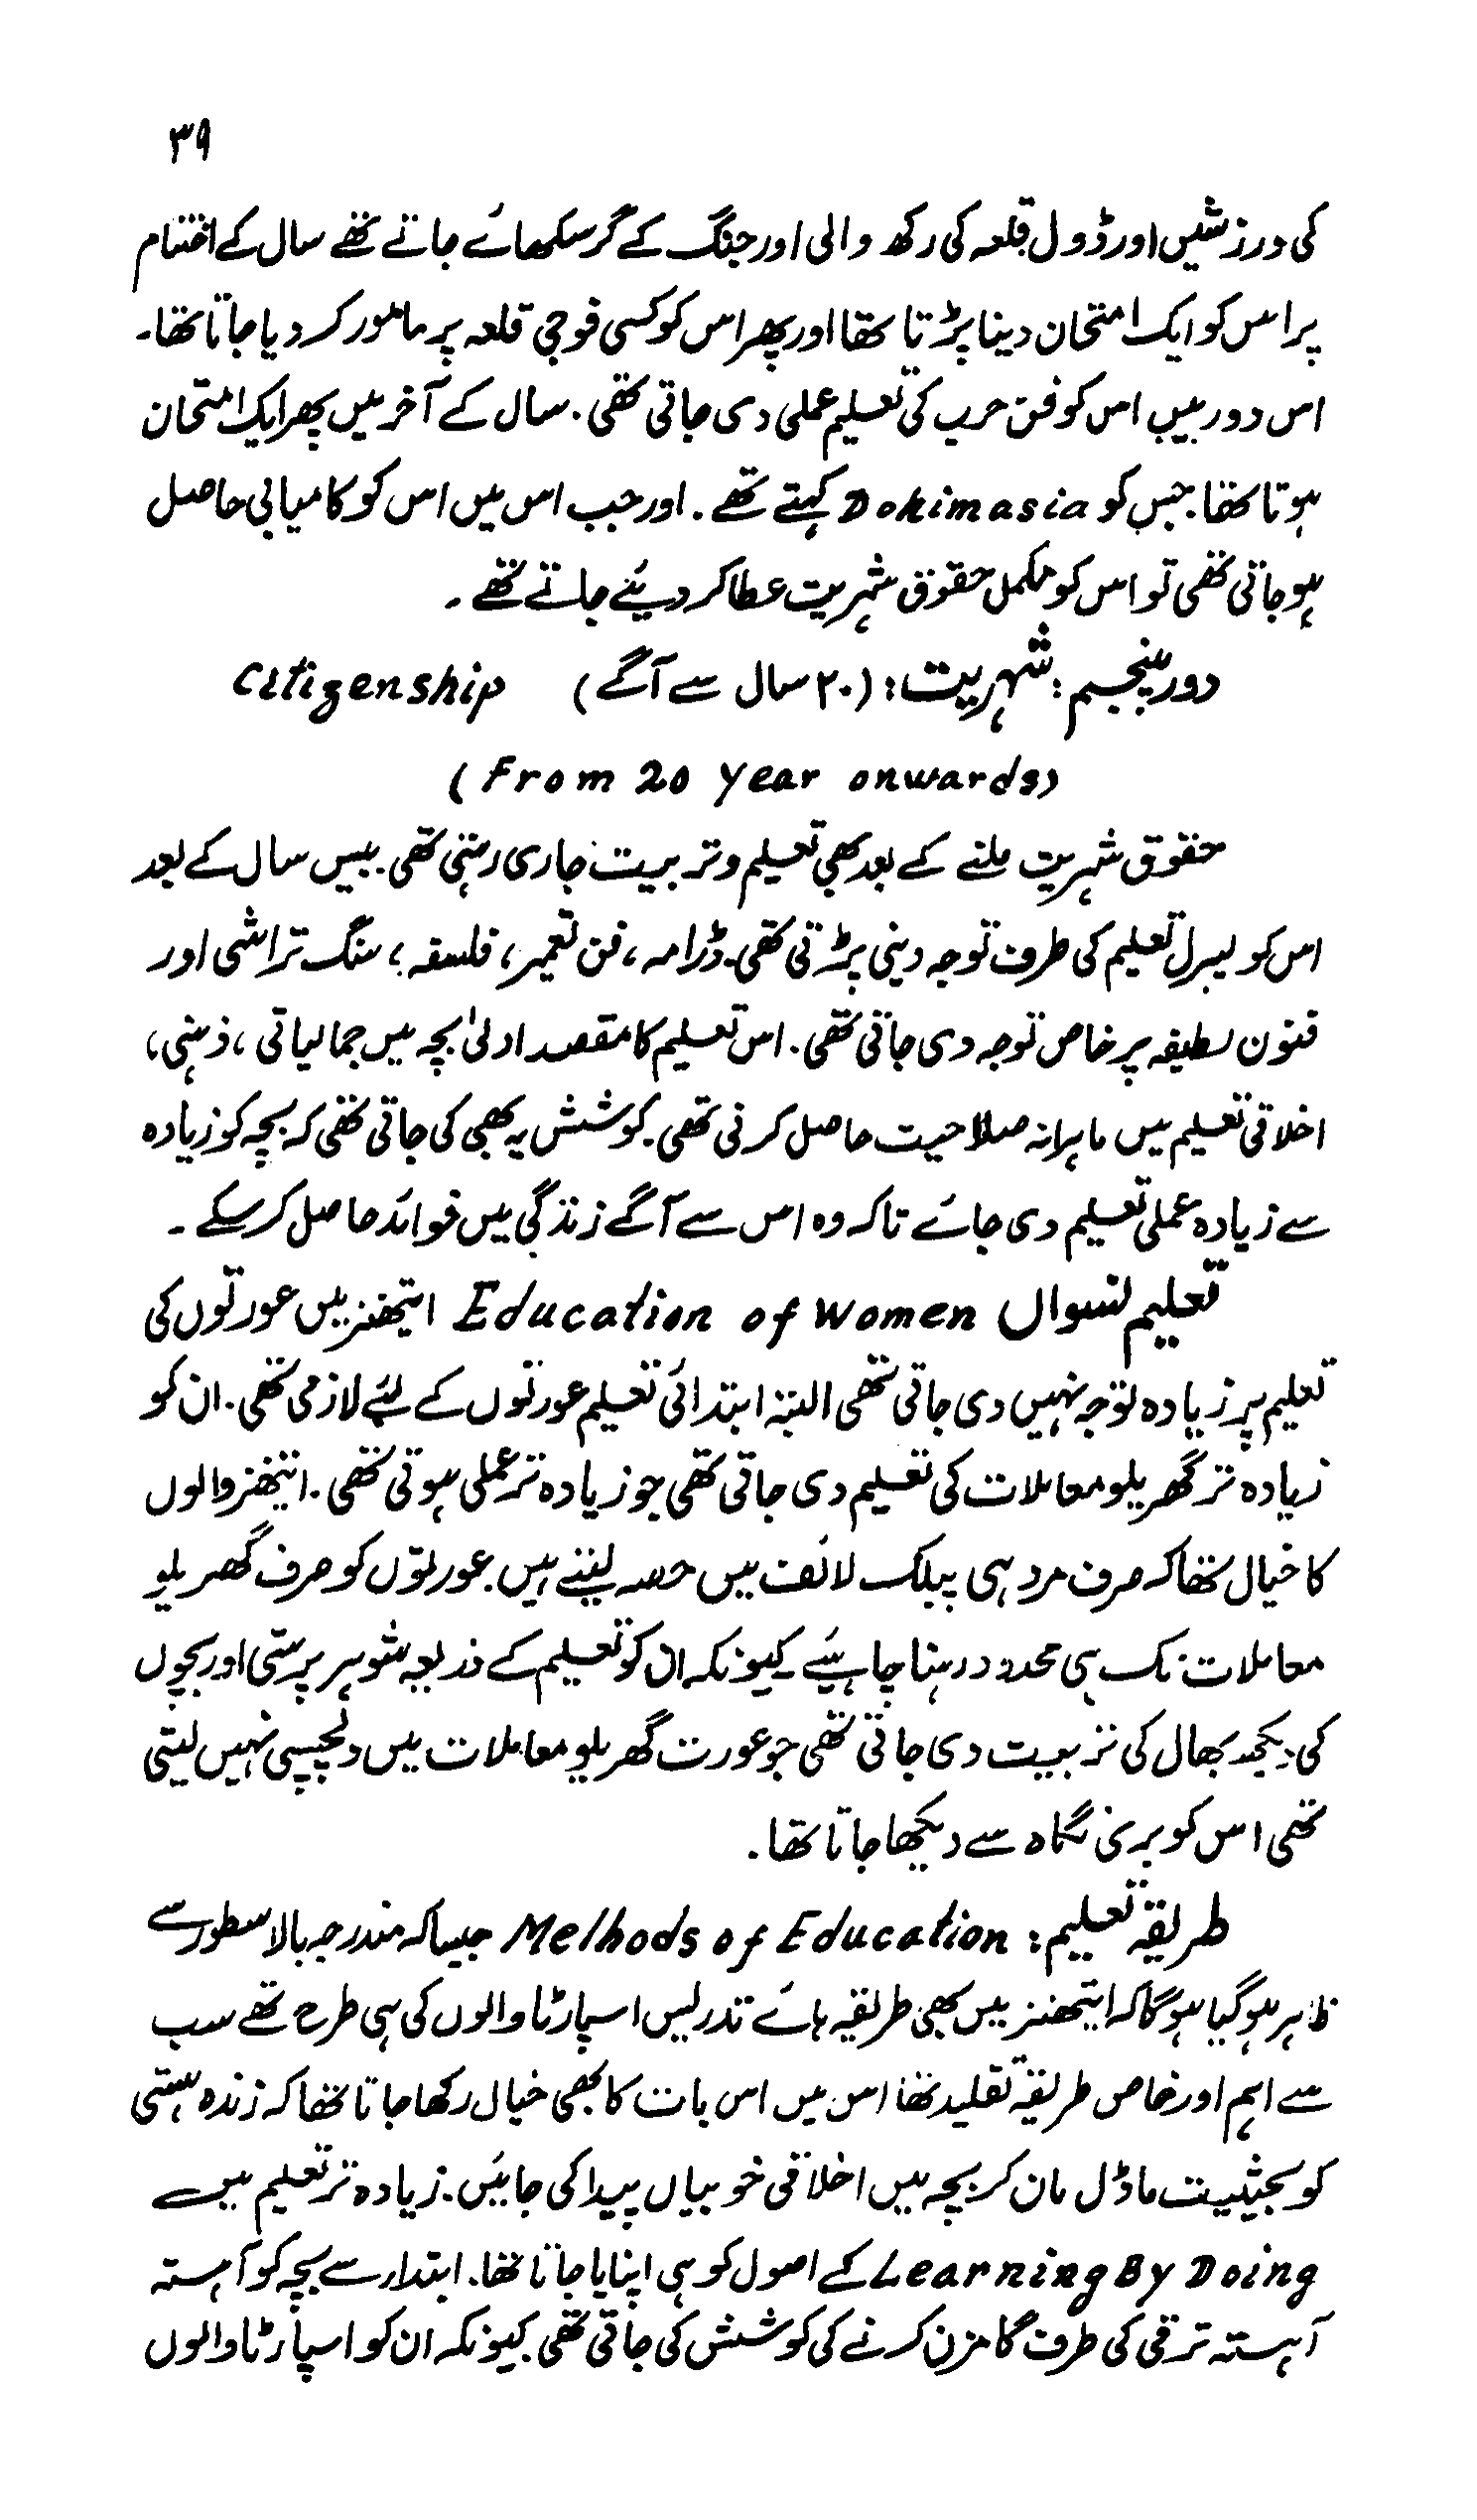 ۳۹
کی ورزشیں اور ڈول قلعہ کی رکھ والی اور جنگ کے گر سکھائے جاتے تھے سال کے اختتام
پر اس کو ایک امتحان دینا پڑتا تھا اور پھر اس کو کسی فوجی قلعہ پر مامور کر دیا جاتا تھا۔
اس دور میں اس کو فن حرب کی تعلیم عملی دی جاتی تھی۔ سال کے آخر میں پھر ایک امتحان
ہوتا تھا۔ جس کو Dokimasia کہتے تھے۔ اور جب اس میں اس کو کامیابی حاصل
ہو جاتی تھی تو اس کو مکمل حقوق شہریت عطا کر دیئے جاتے تھے۔
دور پنجم: شہریت: (۲۰ سال سے آگے) Citizenship
(From 20 Year onwards)
حقوق شہریت ملنے کے بعد بھی تعلیم و تربیت جاری رہتی تھی۔ بیس سال کے بعد
اس کو لبرل تعلیم کی طرف توجہ دینی پڑتی تھی۔ ڈرامہ، فن تعمیر، فلسفہ، سنگ تراشی اور
فنون لطیفہ پر خاص توجہ دی جاتی تھی۔ اس تعلیم کا مقصد اولیٰ بچہ میں جمالیاتی، ذہنی،
اخلاقی تعلیم میں ماہرانہ صلاحیت حاصل کرنی تھی۔ کوشش یہ بھی کی جاتی تھی کہ بچہ کو زیادہ
سے زیادہ عملی تعلیم دی جائے تاکہ وہ اس سے آگے زندگی میں فوائد حاصل کر سکے۔
تعلیم نسواں Education of Women ایتھنز میں عورتوں کی
تعلیم پر زیادہ توجہ نہیں دی جاتی تھی البتہ ابتدائی تعلیم عورتوں کے لئے لازمی تھی۔ ان کو
زیادہ تر گھریلو معاملات کی تعلیم دی جاتی تھی جو زیادہ تر عملی ہوتی تھی۔ ایتھنز والوں
کا خیال تھا کہ صرف مرد ہی پبلک لائف میں حصہ لیتے ہیں۔ عورتوں کو صرف گھریلو
معاملات تک ہی محدود رہنا چاہیئے کیونکہ ان کو تعلیم کے ذریعہ شوہر پرستی اور بچوں
کی دیکھ بھال کی تربیت دی جاتی تھی جو عورت گھریلو معاملات میں دلچسپی نہیں لیتی
تھی اس کو بری نگاہ سے دیکھا جاتا تھا۔
طریقہ تعلیم: Methods of Education جیسا کہ مندرجہ بالا سطور سے
ظاہر ہو گیا ہو گا کہ ایتھنز میں بھی طریقہ ہائے تدریس اسپارٹا والوں کی ہی طرح تھے سب
سے اہم اور خاص طریقہ تقلید تھا اس میں اس بات کا بھی خیال رکھا جاتا تھا کہ زندہ ہستی
کو بحیثیت ماڈل مان کر بچہ میں اخلاقی خوبیاں پیدا کی جائیں۔ زیادہ تر تعلیم میں
Learning By Doing کے اصول کو ہی اپنایا جاتا تھا۔ ابتداء سے بچہ کو آہستہ
آہستہ ترقی کی طرف گامزن کرنے کی کوشش کی جاتی تھی کیونکہ ان کو اسپارٹا والوں